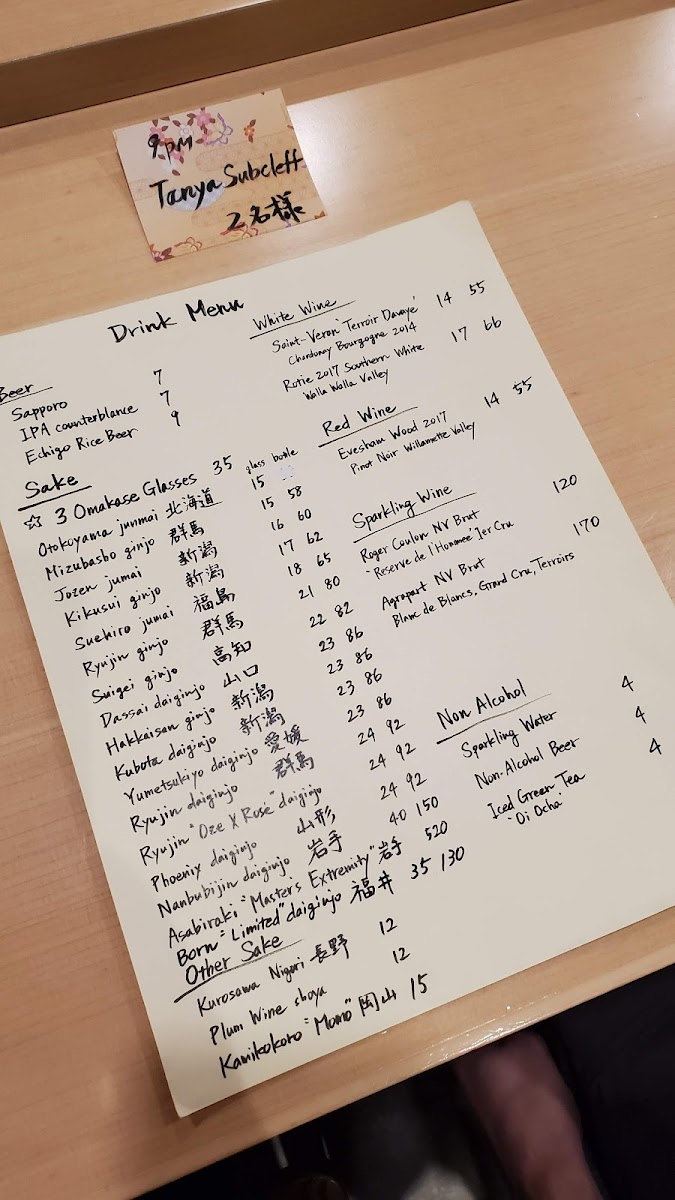 9pm
Tanya Subcleff
2名様
Drink Menu
Beer
Sapporo 7
IPA counterblance 7
Echigo Rice Beer 9
Sake
☆ 3 Omakase Glasses 35
glass bottle
Otokoyama junmai 北海道 15
Mizubasho ginjo 群馬 15 58
Jozen jumai 新潟 16 60
Kikusui ginjo 新潟 17 62
Suehiro jumai 福島 18 65
Ryujin ginjo 群馬 21 80
Suigei ginjo 高知 22 82
Dassai daiginjo 山口 23 86
Hakkaisan ginjo 新潟 23 86
Kubota daiginjo 新潟 23 86
Yumetsukiyo daiginjo 愛媛 23 86
Ryujin daiginjo 群馬 24 92
Ryujin "Oze X Rosé" daiginjo 24 92
Phoenix daiginjo 山形 24 92
Nanbubijin daiginjo 岩手 40 150
Asabiraki "Masters Extremity" 岩手 520
Born "Limited" daiginjo 福井 35 130
Other Sake
Kurosawa Nigori 長野 12
Plum Wine choya 12
Kamikokoro "Momo" 岡山 15
White Wine
Saint-Veran 'Terroir Davayé' 14 55
Chardonay Bourgogne 2014
Rotie 2017 Southern White 17 66
Walla Walla Valley
Red Wine
Evesham Wood 2017 14 55
Pinot Noir Willamette Valley
Sparkling Wine
Roger Coulon NV Brut 120
"Reserve de l'Hommée" 1er Cru
Agrapart NV Brut 170
Blanc de Blancs, Grand Cru, Terroirs
Non Alcohol
Sparkling Water 4
Non-Alcohol Beer 4
Iced Green Tea 4
"Oi Ocha"